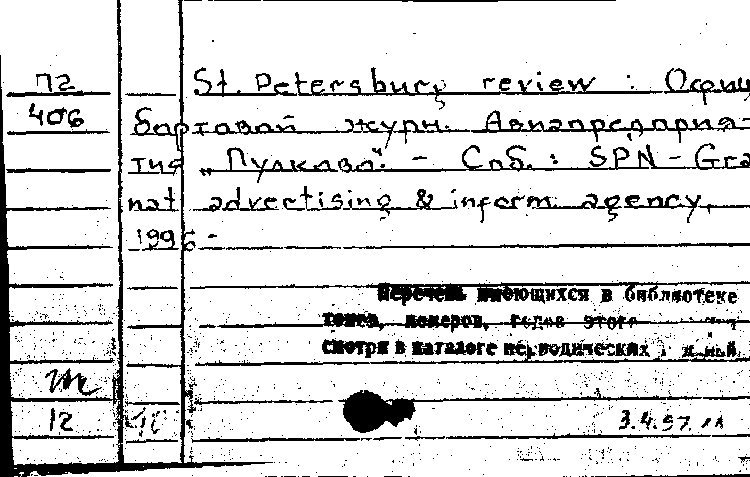 П2 St. Petersburg review : Офиц
406 бортовой журн. Авиапредприя-
тия „Пулково“. - Спб. : SPN - Gra
nat advertising & inform. agency,
1996 -
Перечень имеющихся в библиотеке
томов, номеров, годов этого
смотри в каталоге периодических изданий
12
3.4.97